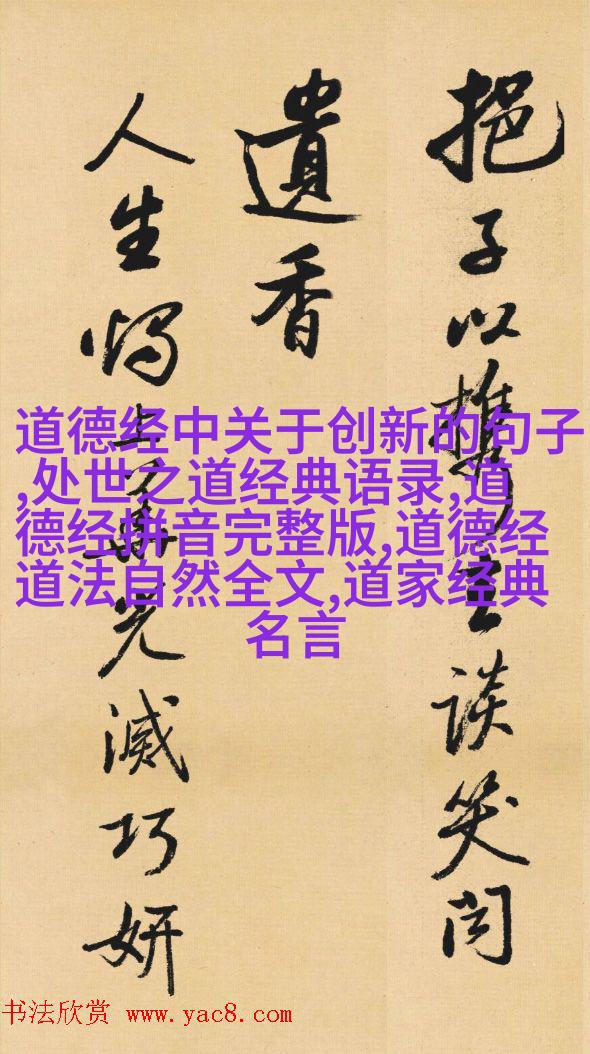 挹子以談笑
遺香
人生光滅巧妍
道德经中关于创新的句子
,处世之道经典语录,道
德经拼音完整版,道德经
道法自然全文,道家经典
名言
书法欣赏 www.yac8.com